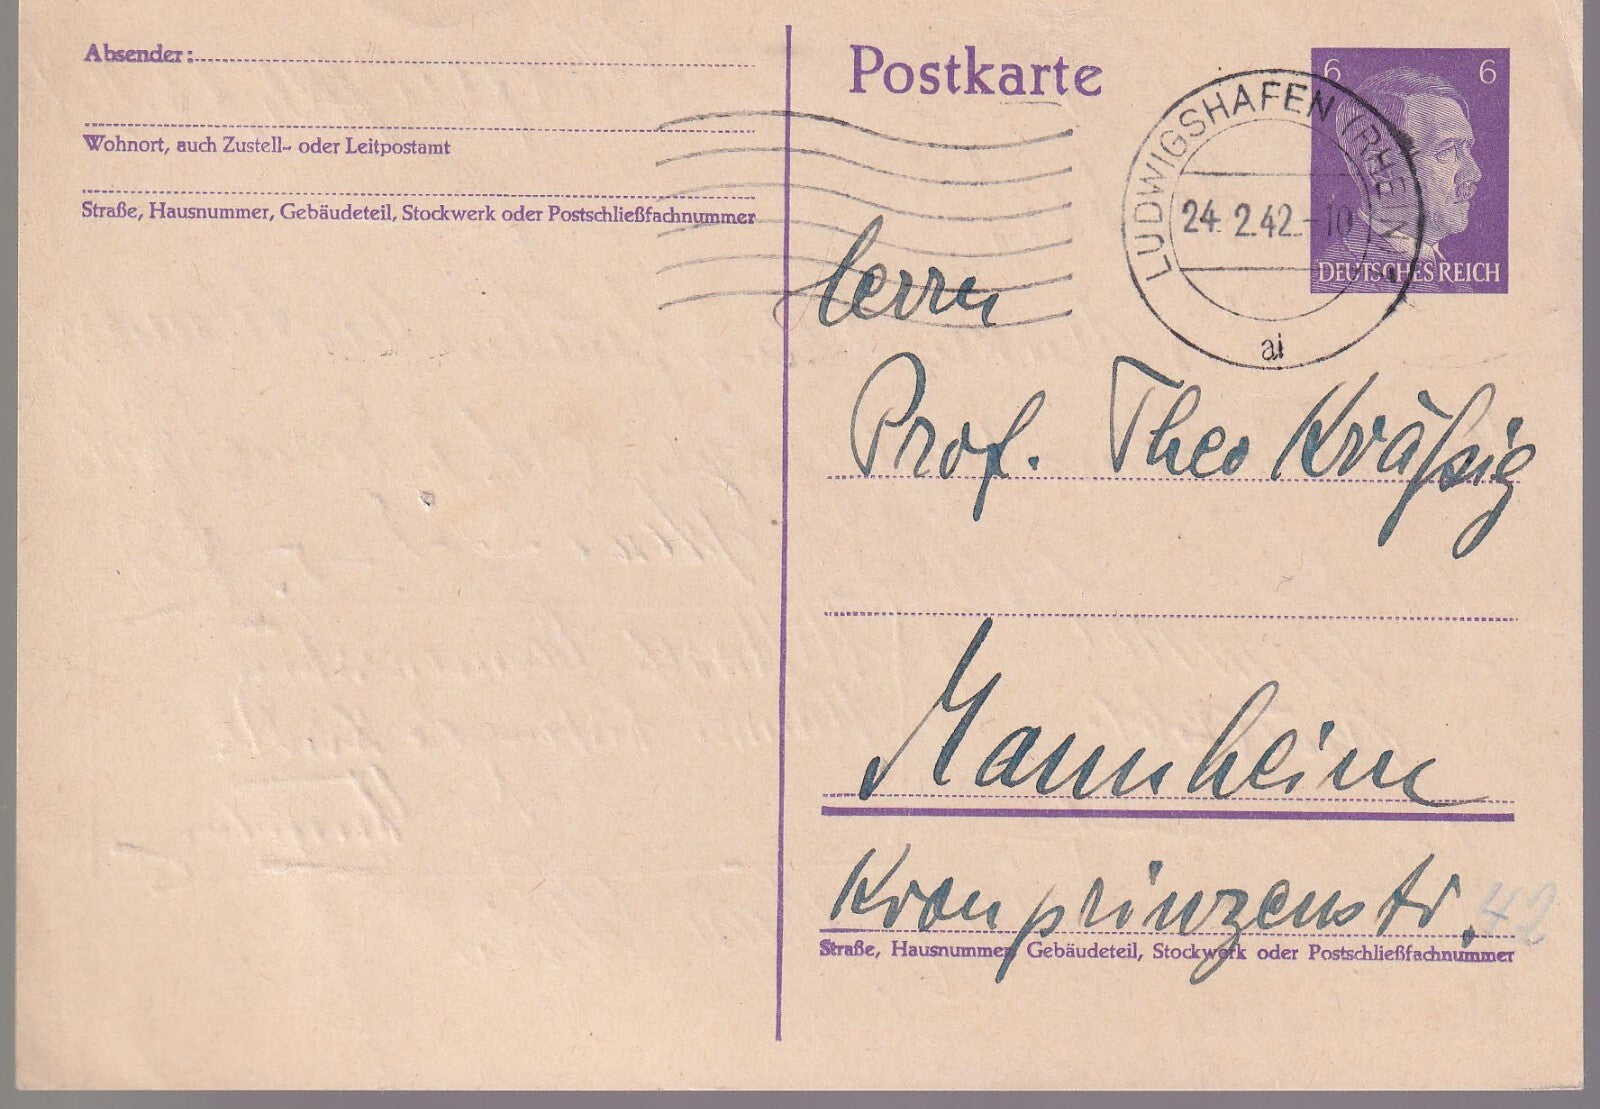 Absender:
Wohnort, auch Zustell- oder Leitpostamt
Straße, Hausnummer, Gebäudeteil, Stockwerk oder Postschließfachnummer
Postkarte
6 6
DEUTSCHES REICH
LUDWIGSHAFEN (RHEIN)
24.2.42.-10
ai
Herrn
Prof. Theo Kräßig
Mannheim
Kronprinzenstr. 42
Straße, Hausnummer, Gebäudeteil, Stockwerk oder Postschließfachnummer